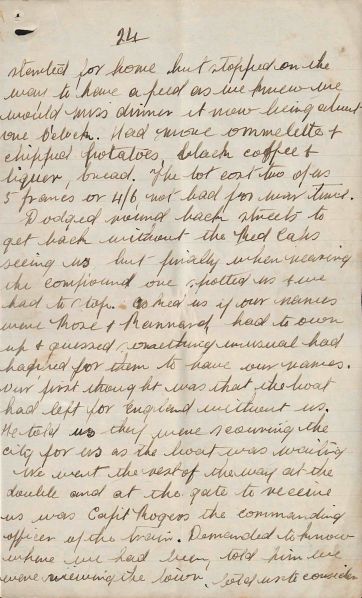 24
started for home but stopped on the
way to have a feed as we knew we
would miss dinner it now being about
one o'clock. Had more ommelette &
chipped potatoes, black coffee &
liquer, bread. The lot cost two of us
5 francs or 4/6 not bad for war times.
Dodged round back streets to
get back without the Red Caps
seeing us but finally when nearing
the compound one spotted us & we
had to stop. Asked us if our names
were Rose & Rannard, had to own
up & guessed something unusual had
happened for them to have our names.
Our first thought was that the boat
had left for England without us.
He told us they were scouring the
city for us as the boat was waiting
We went the rest of the way at the
double and at the gate to receive
us was Capt Rogers the commanding
officer of the train. Demanded to know
where we had been, told him we
were viewing the town, told us to consider